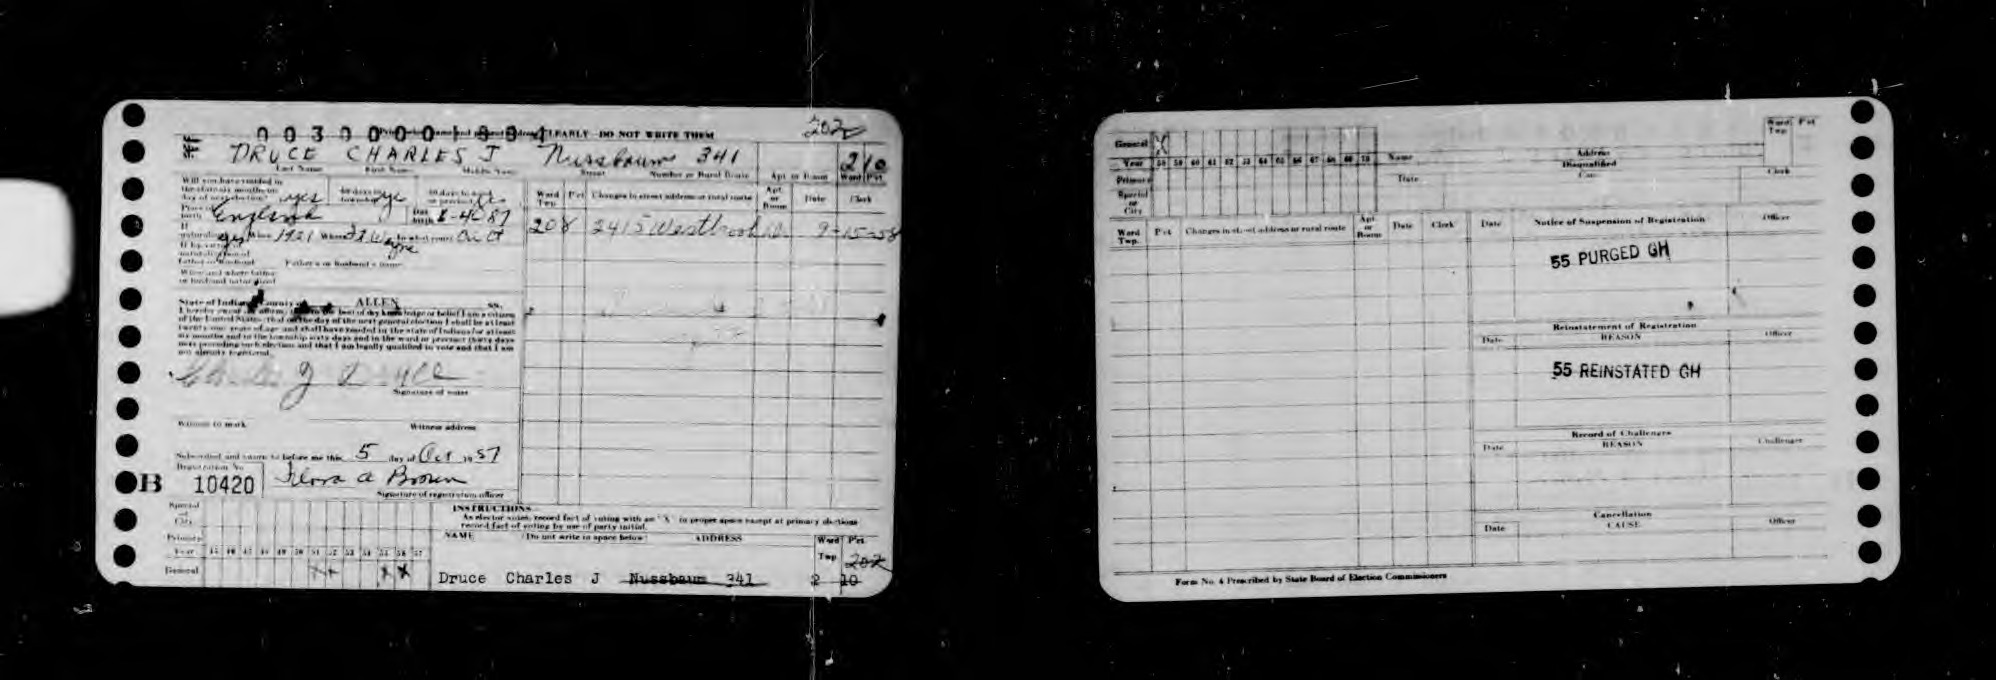 CLEARLY - DO NOT WRITE THEM
202
DRUCE CHARLES J Nussbaum 341 2 10
Last Name First Name Middle Name Street Number or Rural Route Apt or Room Ward Pct
Will you have resided in
the state six months on
day of next election? yes 60 days in township ye 30 days in ward or precinct
Ward Twp. Pct Changes in street address or rural route Apt. or Room Date Clerk
Place of birth England
208 2415 Westbrook Dr 9-15-58
yes When 1921 Where Ft Wayne In what court Cir Ct
Father's or husband's name
When and where father
or husband naturalized
State of Indiana, County of ALLEN ss.
I hereby swear or affirm, that to the best of my knowledge or belief I am a citizen
of the United States; that on the day of the next general election I shall be at least
twenty-one years of age and shall have resided in the state of Indiana for at least
six months and in the township sixty days and in the ward or precinct thirty days
next preceding such election and that I am legally qualified to vote and that I am
not already registered.
Charles J Druce
Signature of voter
Witness to mark Witness address
Subscribed and sworn to before me this 5 day of Oct 19
Registration No.
B 10420 Flora A Brown
Signature of registration officer
INSTRUCTIONS
As elector votes, record fact of voting with an "X" in proper space except at primary elections
record fact of voting by use of party initial.
Special or City
Primary
Year 45 46 47 48 49 50 51 52 53 54 55 56 57
General
NAME (Do not write in space below) ADDRESS Ward Twp Pct
202
Druce Charles J Nussbaum 341 2 10
General X
Year 58 59 60 61 62 63 64 65 66 67 68 69 70
Primary
Special or City
Name Address
Disqualified
Date Cause Clerk
Ward Twp. Pct
Ward Twp. Pct Changes in street address or rural route Apt. or Room Date Clerk
Date Notice of Suspension of Registration Officer
55 PURGED GH
Reinstatement of Registration
Date REASON Officer
55 REINSTATED GH
Record of Challenges
Date REASON Challenger
Cancellation
Date CAUSE Officer
Form No. 4 Prescribed by State Board of Election Commissioners